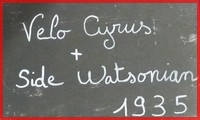 Velo Cyrus
+
Side Watsonian
1935